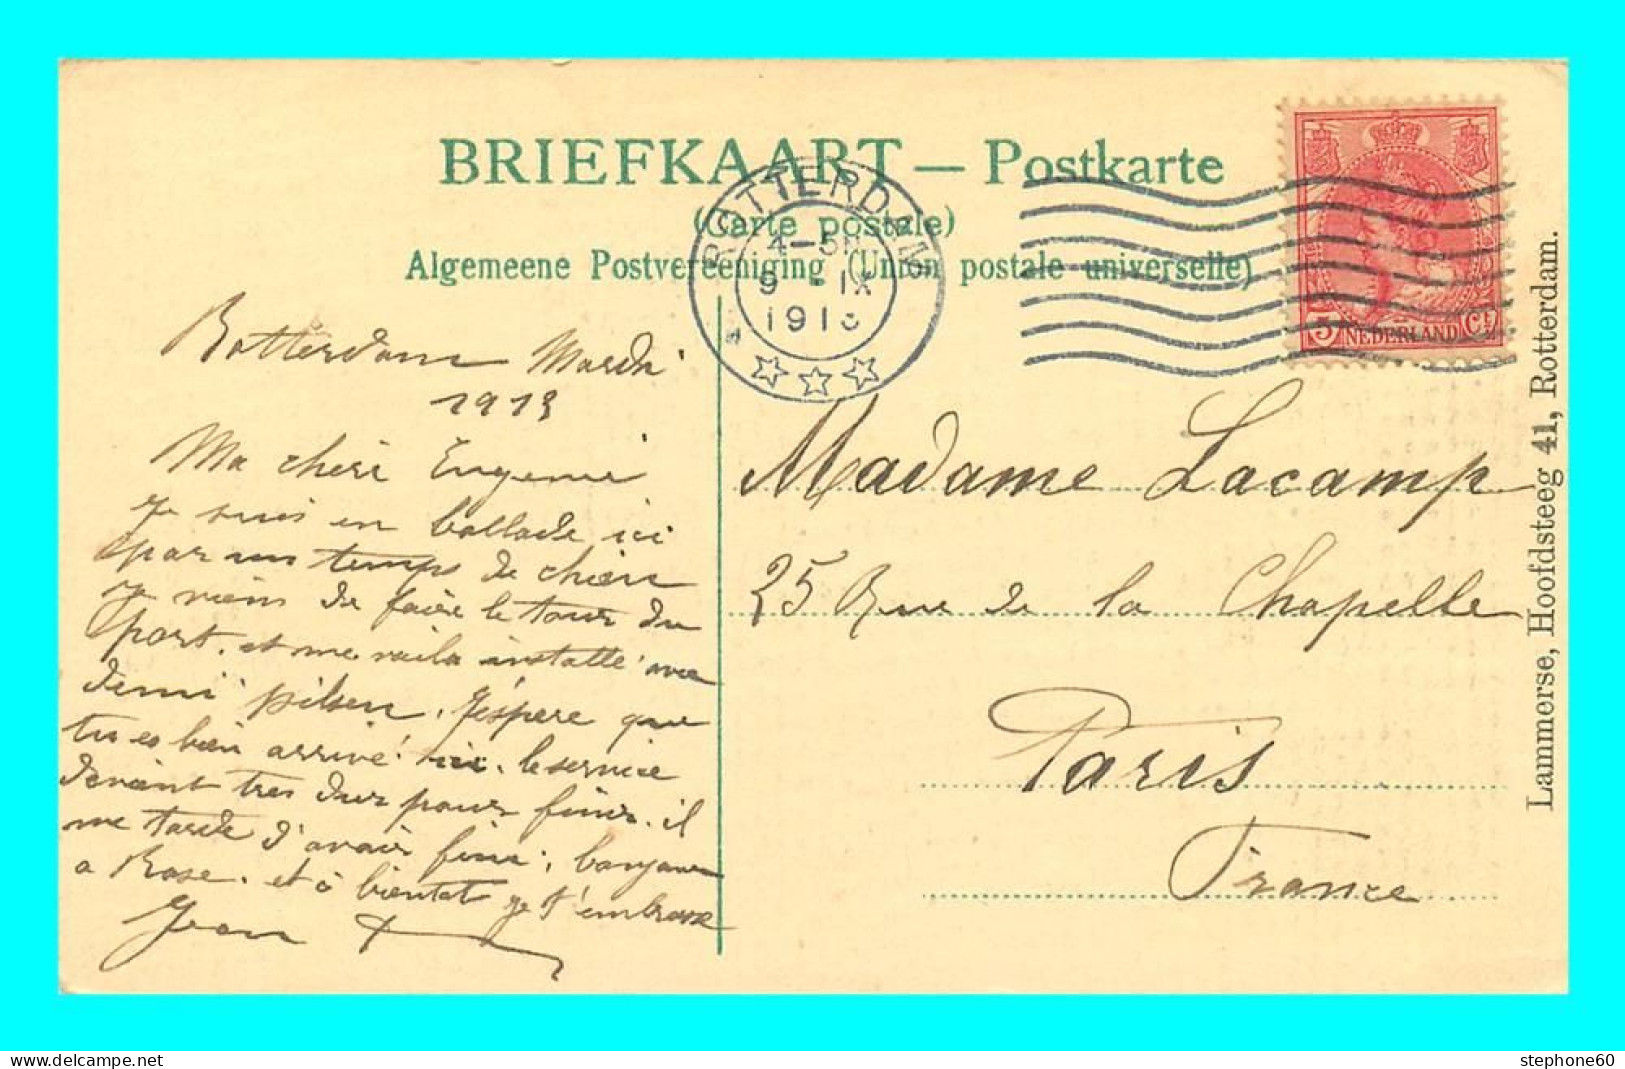 BRIEFKAART — Postkarte
(Carte postale)
Algemeene Postvereeniging (Union postale universelle)
ROTTERDAM
4-5N
9 IX
1913
5 NEDERLAND Ct
Rotterdam Mardi
1913
Ma cheri Eugenie
Je suis en ballade ici
par un temps de chien
Je viens de faire le tour du
port. et me voila installé avec
demi pilsen. J'éspere que
tu es bien arrivé ici. le service
devient tres dur pour finir. il
me tarde d'avoir fini. bonjour
a Rose. et à bientot je t'embrasse
Jean
Madame Lacamp
25 Rue de la Chapelle
Paris
France
Lammerse, Hoofdsteeg 41, Rotterdam.
stephone60